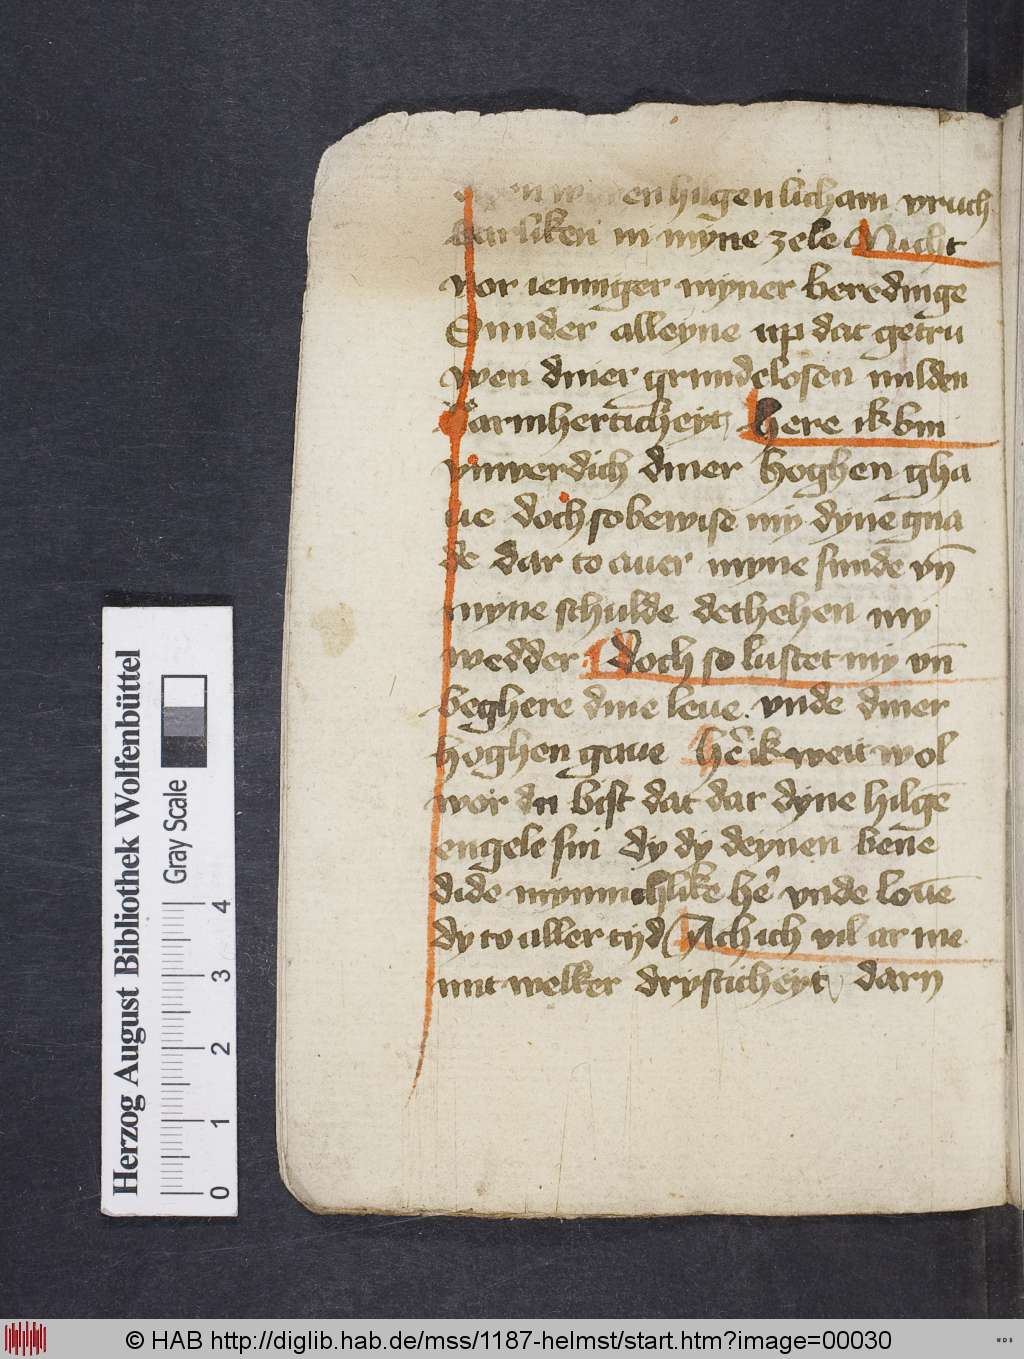 waren hilgen licham vruch
barliken in myne zele Nicht
vor ienniger myner beredinge
Sunder alleyne up dat getru
wen diner grundelosen milden
barmherticheyt here ik bin
vnwerdich diner hoghen gha
ue doch so bewise my dyne gna
de dar to auer myne sunde vn̄
myne schulde dethehen my
wedder Doch so lustet my vn̄
beghere dine leue vnde diner
hoghen gaue hē ik weit wol
wor du bist dat dar dyne hilgē
engele sin dy dy deynen bene
dide mynnichlike hē vnde louē
dy to aller tijd Ach ich vil arme
mit welker drysticheyt darn
Herzog August Bibliothek Wolfenbüttel
Gray Scale
0 1 2 3 4
© HAB http://diglib.hab.de/mss/1187-helmst/start.htm?image=00030